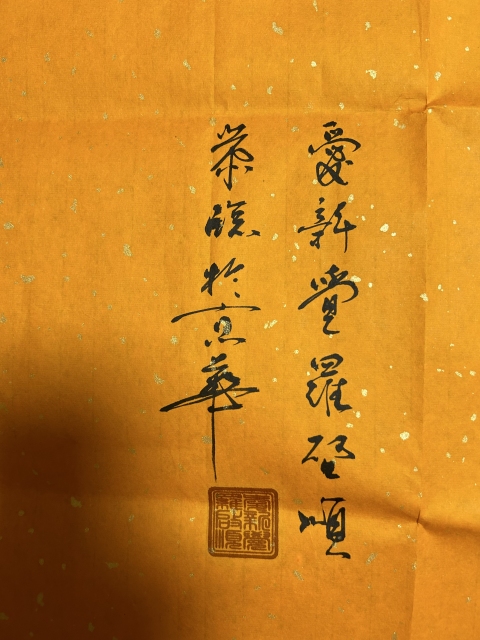 愛新覺羅啓順
恭臨於京華